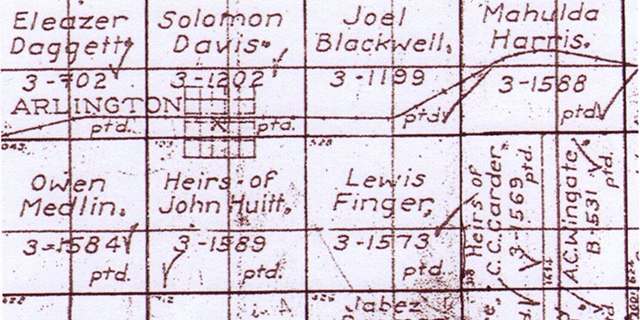 Eleazer
Daggett
3-702
ptd.
Solomon
Davis.
3-1202
ptd.
Joel
Blackwell.
3-1199
ptd
Mahulda
Harris.
3-1588
ptd
ARLINGTON
Owen
Medlin.
3-1584
ptd.
Heirs of
John Huitt.
3-1589
ptd.
Lewis
Finger.
3-1573
ptd.
Heirs of
C.C. Carder
3-1569
ptd.
A.C. Wingate
B-531
ptd.
Jabez